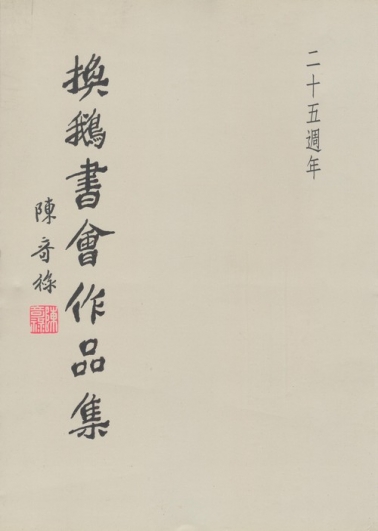 二十五週年
換鵝書會作品集
陳奇祿